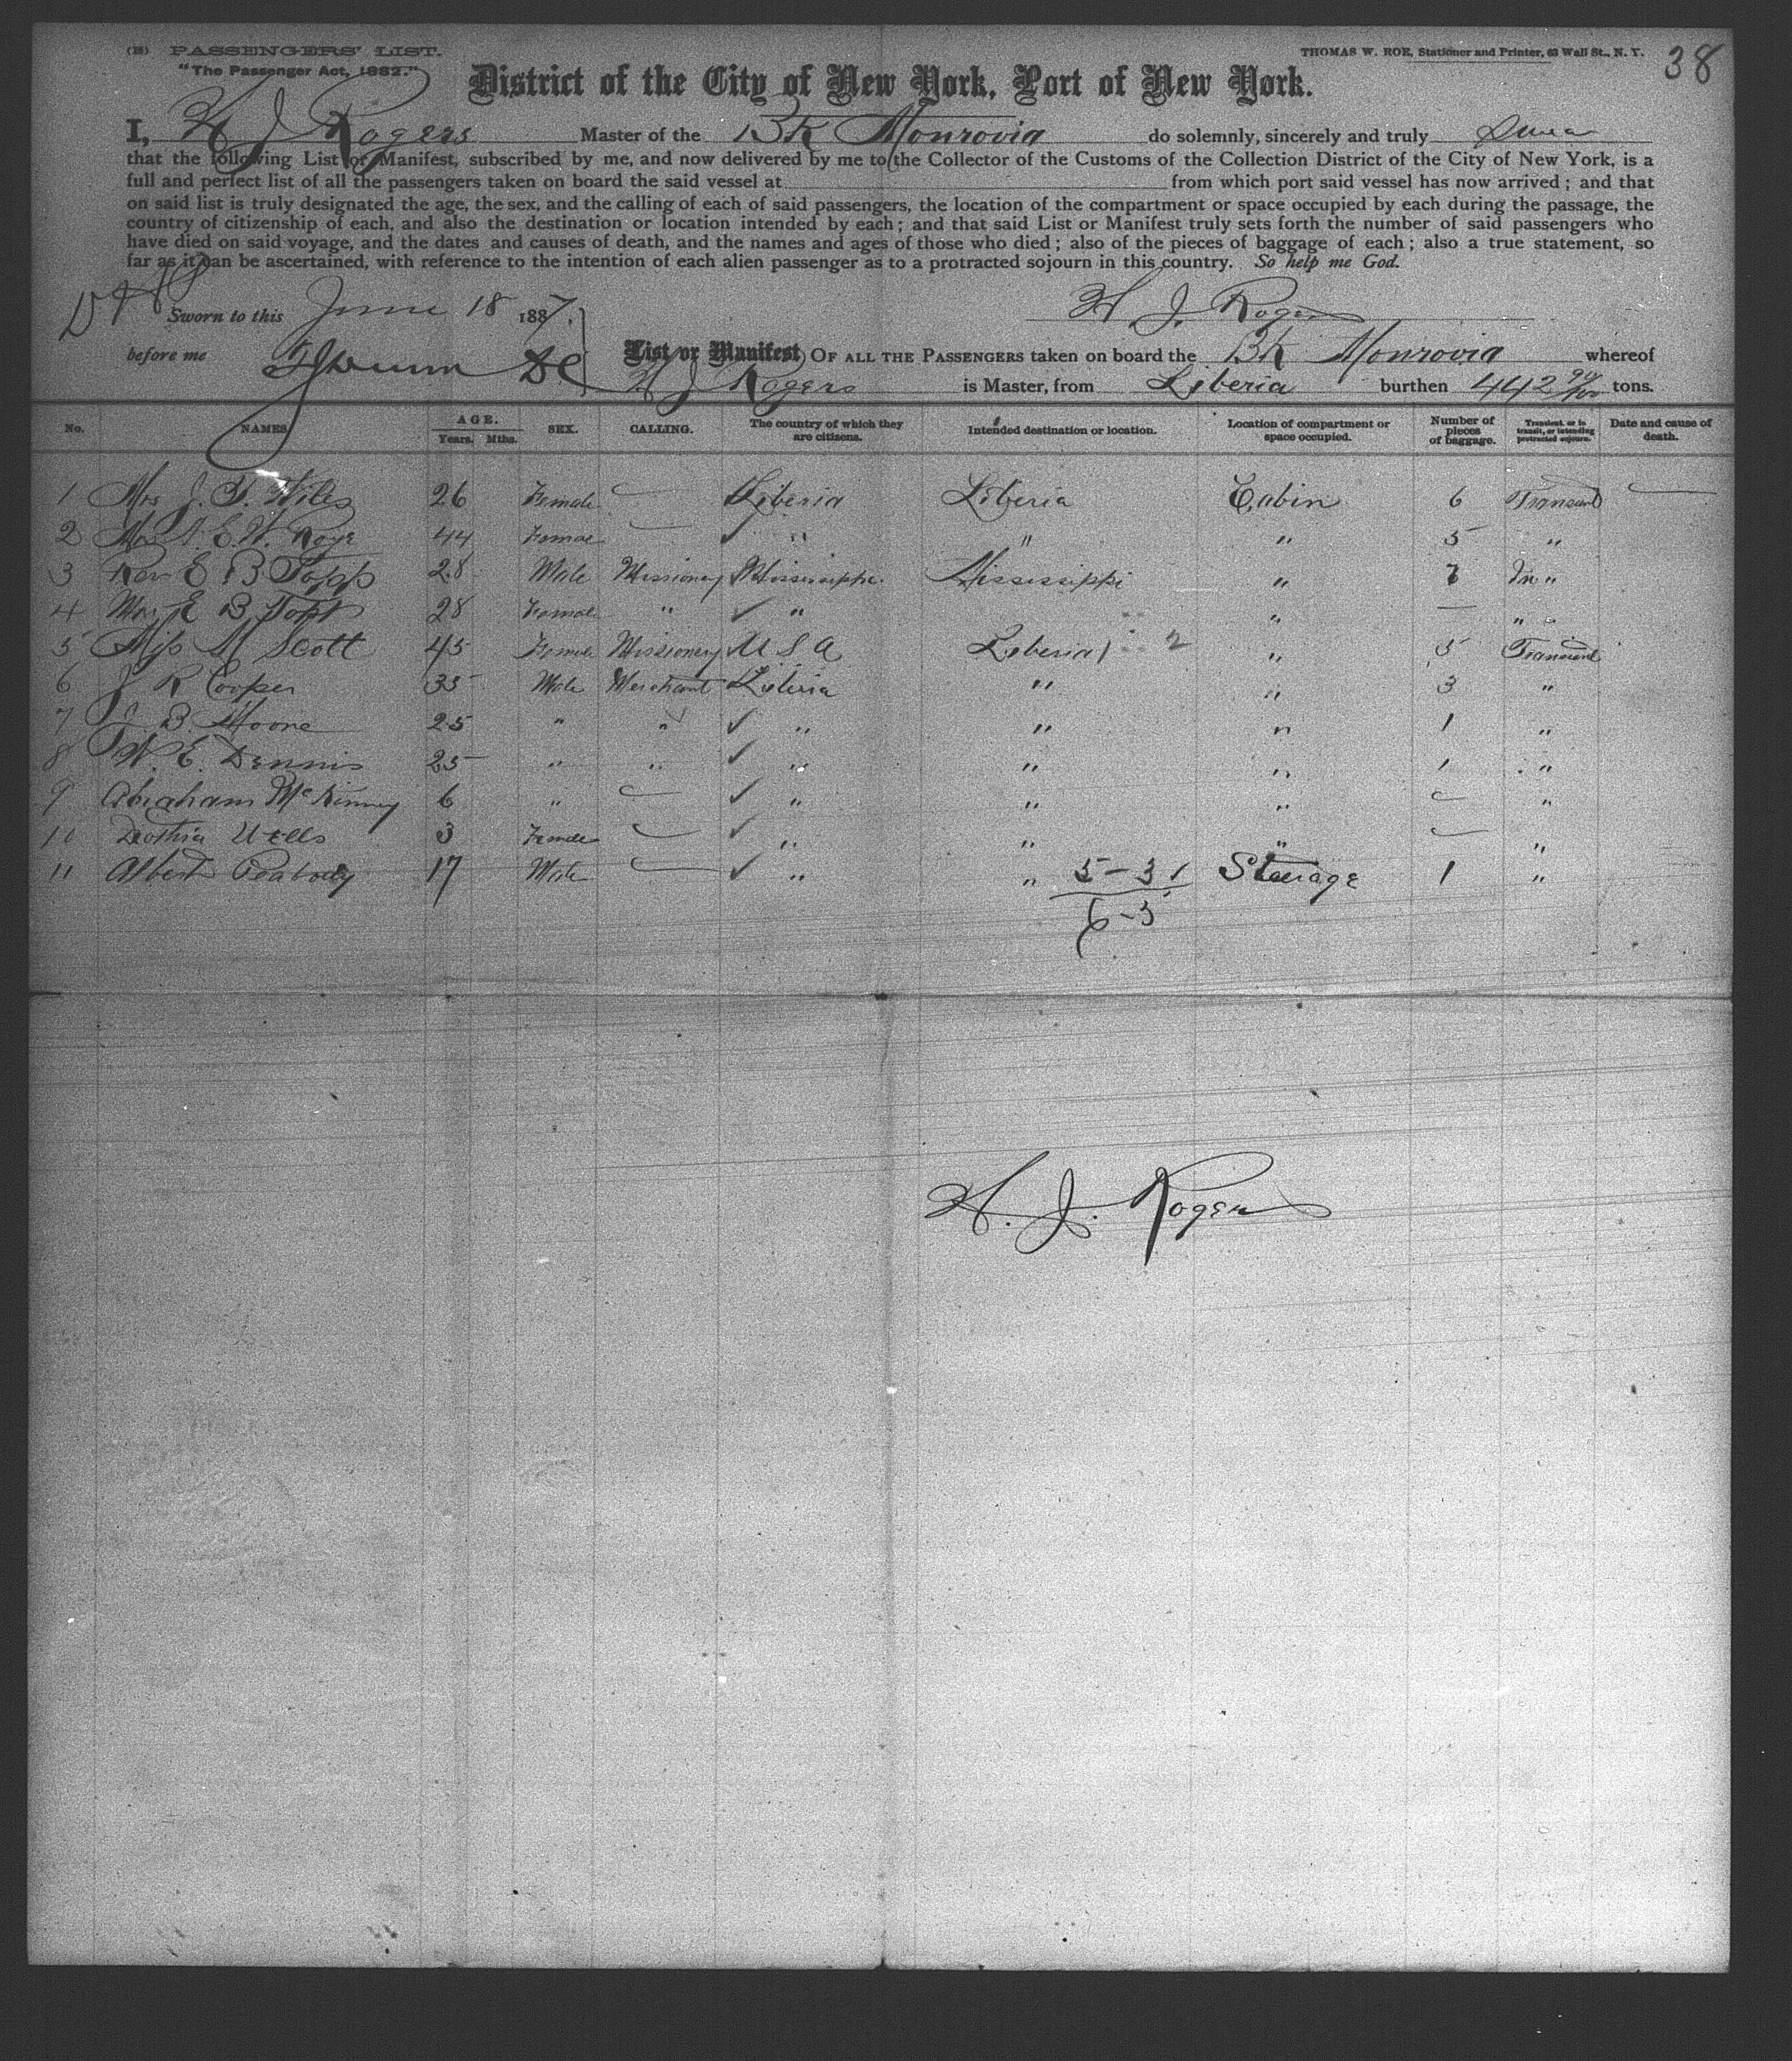 (B) PASSENGERS' LIST.
THOMAS W. ROE, Stationer and Printer, 63 Wall St., N. Y.
38
"The Passenger Act, 1882."
District of the City of New York, Port of New York.
I, H J Rogers Master of the Bk Monrovia do solemnly, sincerely and truly
that the following List or Manifest, subscribed by me, and now delivered by me to the Collector of the Customs of the Collection District of the City of New York, is a
full and perfect list of all the passengers taken on board the said vessel at from which port said vessel has now arrived; and that
on said list is truly designated the age, the sex, and the calling of each of said passengers, the location of the compartment or space occupied by each during the passage, the
country of citizenship of each, and also the destination or location intended by each; and that said List or Manifest truly sets forth the number of said passengers who
have died on said voyage, and the dates and causes of death, and the names and ages of those who died; also of the pieces of baggage of each; also a true statement, so
far as it can be ascertained, with reference to the intention of each alien passenger as to a protracted sojourn in this country. So help me God.
Sworn to this June 18 1887.
H. J. Rogers
before me
List or Manifest OF ALL THE PASSENGERS taken on board the Bk Monrovia whereof
H J Rogers is Master, from Liberia burthen 442 90/100 tons.
No. NAMES. AGE. Years. Mths. SEX. CALLING. The country of which they are citizens. Intended destination or location. Location of compartment or space occupied. Number of pieces of baggage. Transient, or in transit, or intending protracted sojourn. Date and cause of death.
1 Mrs J. T. Wiles 26 Female — Liberia Liberia Cabin 6 Transient —
2 Mrs A. E. W. Roye 44 Female — " " " 5 "
3 Rev E B Topp 28 Male Missionary Mississippi Mississippi " 7 "
4 Mrs E B Topp 28 Female " " " — "
5 Miss M Scott 45 Female Missionary U S A Liberia 2 " 5 Transient
6 J R Cooper 35 Male Merchant Liberia " " 3 "
7 J B. Moore 25 " " " " " 1 "
8 W. E. Dennis 25 " " " " " 1 "
9 Abraham McKinney 6 " — " " " — "
10 Dothia Wells 3 Female — " " " — "
11 Albert Peabody 17 Male — " " 5-31 Steerage 1 "
6-5
H. J. Rogers